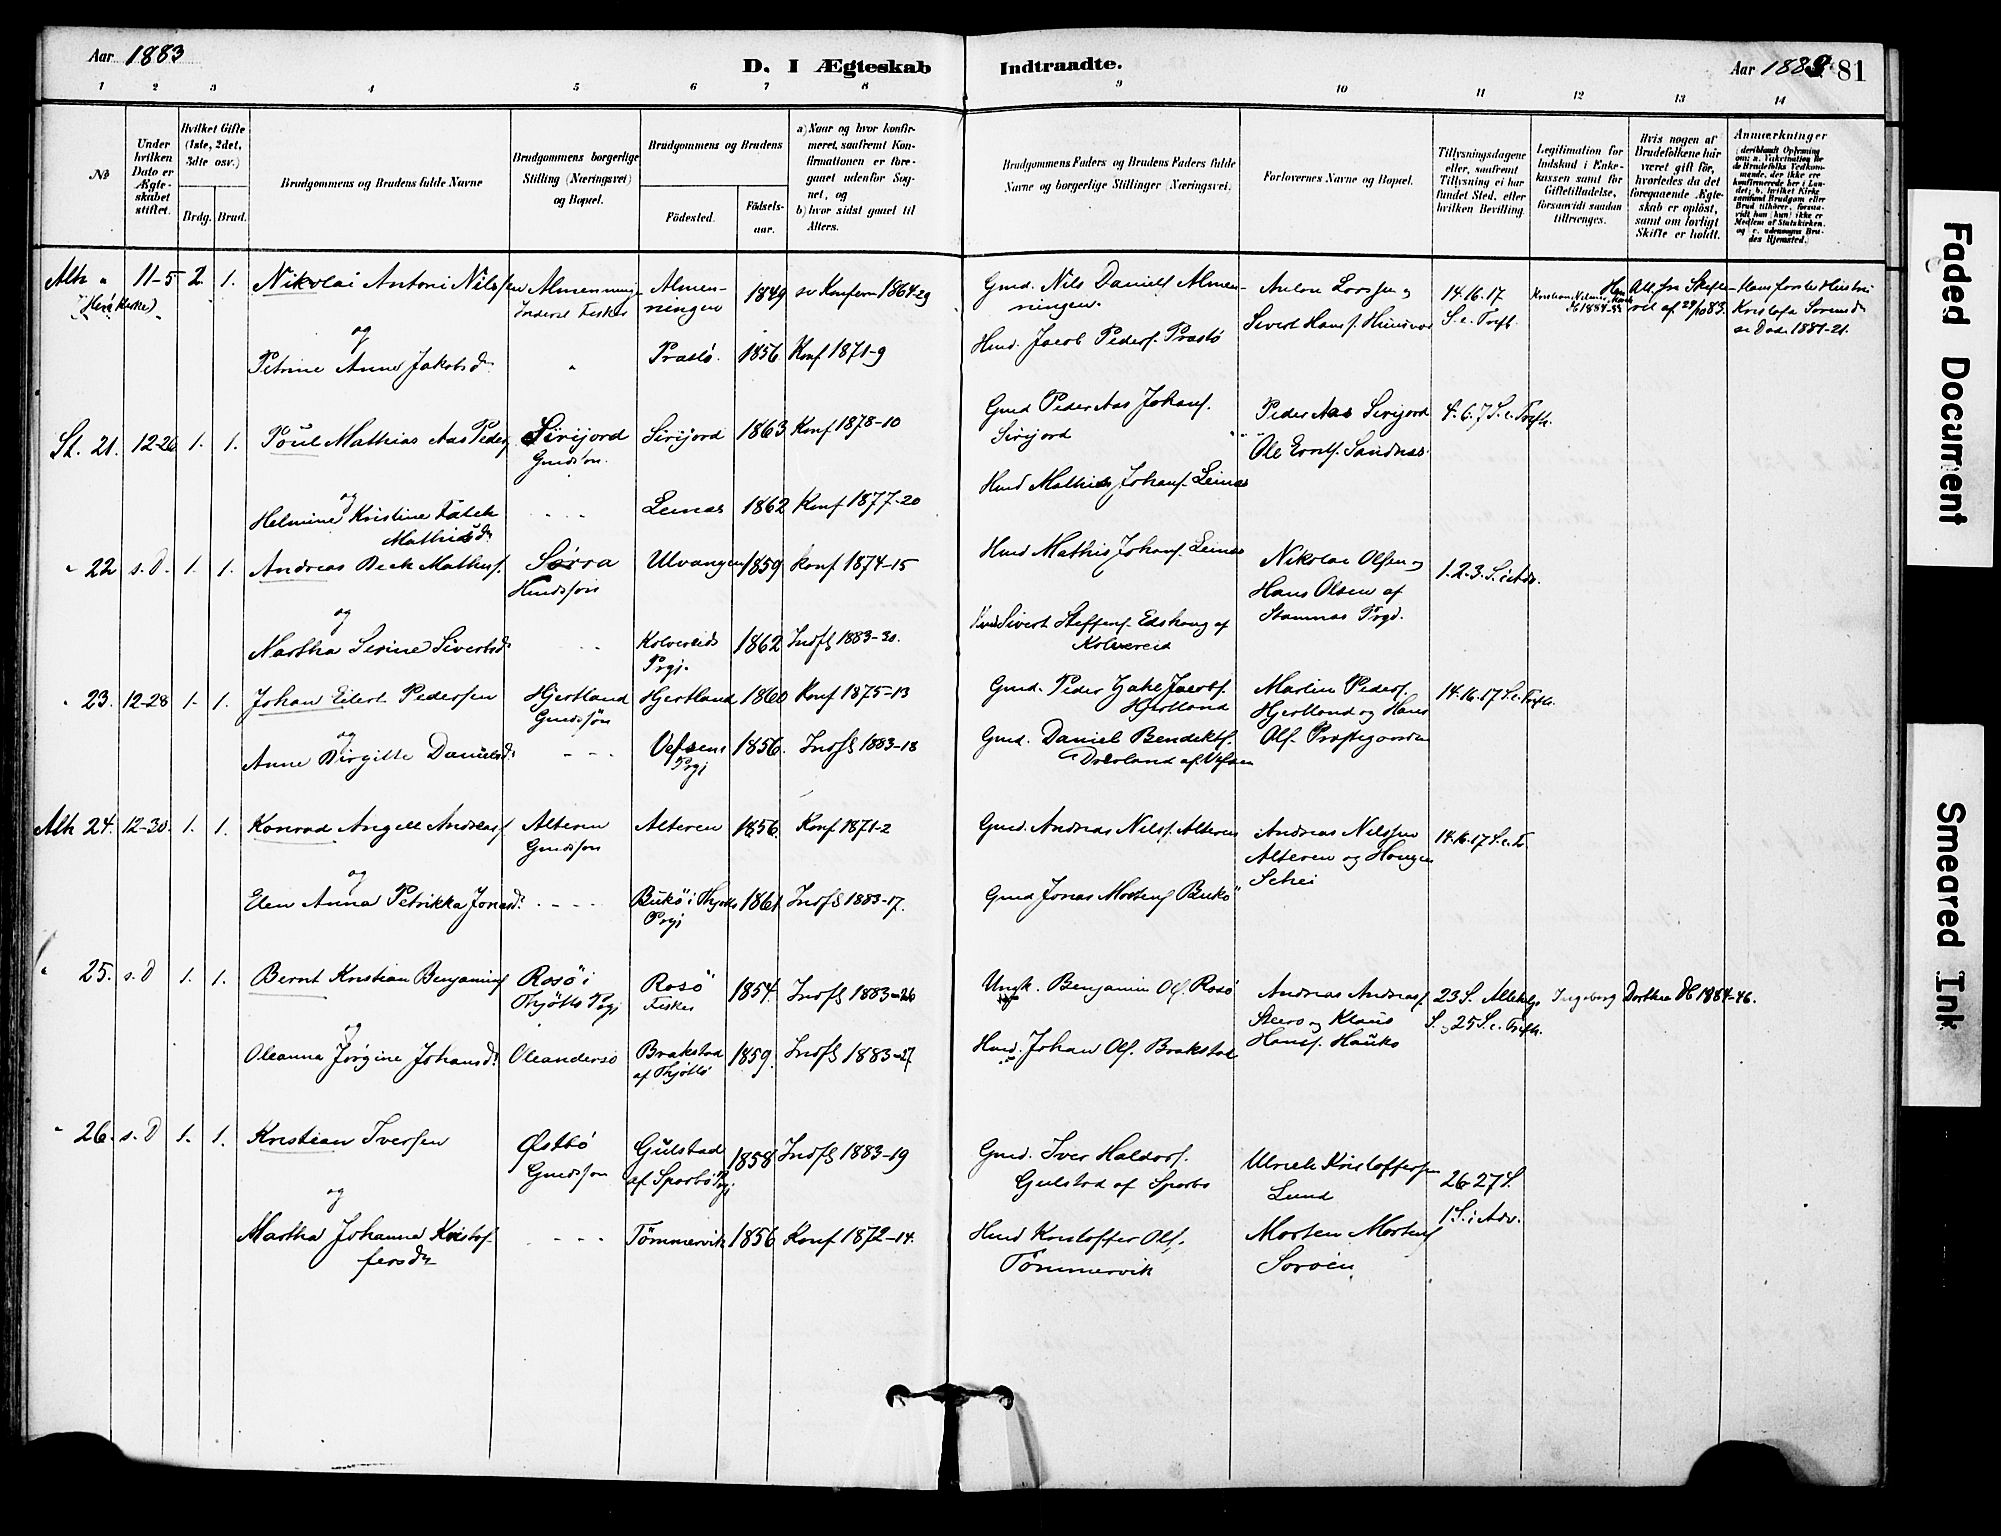 Aar 1883
D. I Ægteskab
Indtraadte.
Aar 1883. 81
1 2 3 4 5 6 7 8 9 10 11 12 13 14
No
Under hvilken Dato er Ægteskabet stiftet.
Hvilket Gifte (1ste, 2det, 3die osv.)
Brdg. Brud.
Brudgommens og Brudens fulde Navne
Brudgommens borgerlige Stilling (Næringsvei) og Bopæl.
Brudgommens og Brudens
Födested.
Födselsaar.
a) Naar og hvor konfirmeret, saafremt Konfirmationen er foregaaet udenfor Sognet, og
b) hvor sidst gaaet til Alters.
Brudgommens Faders og Brudens Faders fulde Navne og borgerlige Stillinger (Næringsvei.)
Forlovernes Navne og Bopæl.
Tillysningsdagene eller, saafremt Tillysning ei har fundet Sted, efter hvilken Bevilling.
Legitimation for Indskud i Enkekassen samt for Giftetilladelse, forsaavidt saadan tiltrænges.
Hvis nogen af Brudefolkene har været gift för, hvorledes da det foregaaende Ægteskab er oplöst, samt om lovligt Skifte er holdt.
Anmærkninger
Alh " 11-5 2. 1. Nikolai Antoni Nilssen Almenningen Inderst Fisker Almenningen 1849 sv Konferm 1864-29
Gmd. Nils Daniels Almenningen. Anton Larssen og Sivert Hans. 14.16.17 S. e. Trft.
og
Petrine Anne Jakobsd. " Prastö. 1856 Konf 1871-9
Hmd. Jacob Peders. Prastö
St. 21. 12-26 1. 1. Poul Mathias Aas Peders Sirijord Gmdsön. Sirijord 1863 Konf 1878-10
Gmd Peder Aas Johans. Sirijord Peder Aas Sirijord Ole Ernts. Sandnes 4.6.7 S. e. Trft.
og
Helmine Kristine Falch Mathisd. - - - Leines 1862 Konf 1877-20
Hmd Mathias Johans. Leines
" 22 s. D. 1. 1. Andreas Bech Mathis. Sörra Hmdssön Ulvangen 1859 Konf 1874-15
Hmd Mathis Johans. Leines Nikolai Olsen og Hans Olsen af Stamnes Prgd. 1.2.3. S. i Adv.
og
Martha Serine Sivertsd. - - - Kolvereid Prgj. 1862 Indfl 1883-30.
Sivert Steffens. Edshaug af Kolvereid
" 23. 12-28 1. 1. Johan Eilert Pedersen Hjertland Gmdssön Hjertland 1860 Konf 1875-13
Gmd. Peder Zahl Jacobs. Hjertland Martin Peders. Hjertland og Hans Ols. Præstegaarden 14.16.17 S. e. Trft.
og
Anne Birgitte Danielsd. - - - Vefsens Prgj 1856. Indfl 1883-18
Gmd. Daniel Bendikts. Dolerland af Vefsen
Alh 24. 12-30. 1. 1. Konrad Angell Andreas. Alteren Gmdssön Alteren 1856. Konf 1871-2
Gmd. Andreas Nils. Alteren Andreas Nilssen Alteren og Haagen Schei 14.16.17 S. e. T
og
Elen Anna Petrikka Jonasd. - - - - Bukö i Thjöttö Prgj 1861 Indfl 1883-17.
Gmd Jonas Mortens Bukö
" 25. s. D 1. 1. Bernt Kristian Benjamins Rosö i Thjöttö Prgj Rosö Fisker 1854. Indfl 1883-26
Ungk. Benjamin Ols. Rosö Andreas Andreas. Steiro og Klaus Hans. Haukø 23 S. Allehelgs S. og 25 S. e. Trft. Ingeborg Dorthea Db 1884-46.
og
Oleanna Jørgine Johansd. Oleandersö Brakstad af Thjöttö 1859. Indfl 1883-27
Hmd. Johan Ols. Brakstad
" 26. s. D 1. 1. Kristian Iversen Østbö Gmdssön Gulstad af Sparbö Prgj 1858 Indfl 1883-19
Gmd. Iver Haldors. Gulstad af Sparbo Ulrich Kristoffersen Lund 26-27 S. 1 S. i Adv.
og
Martha Johanna Kristoffersd. - - - - Tömmervik 1856 Konf 1872-14.
Hmd Kristoffer Ols. Tömmervik Morten Mortens Soröen
Faded Document
Smeared Ink